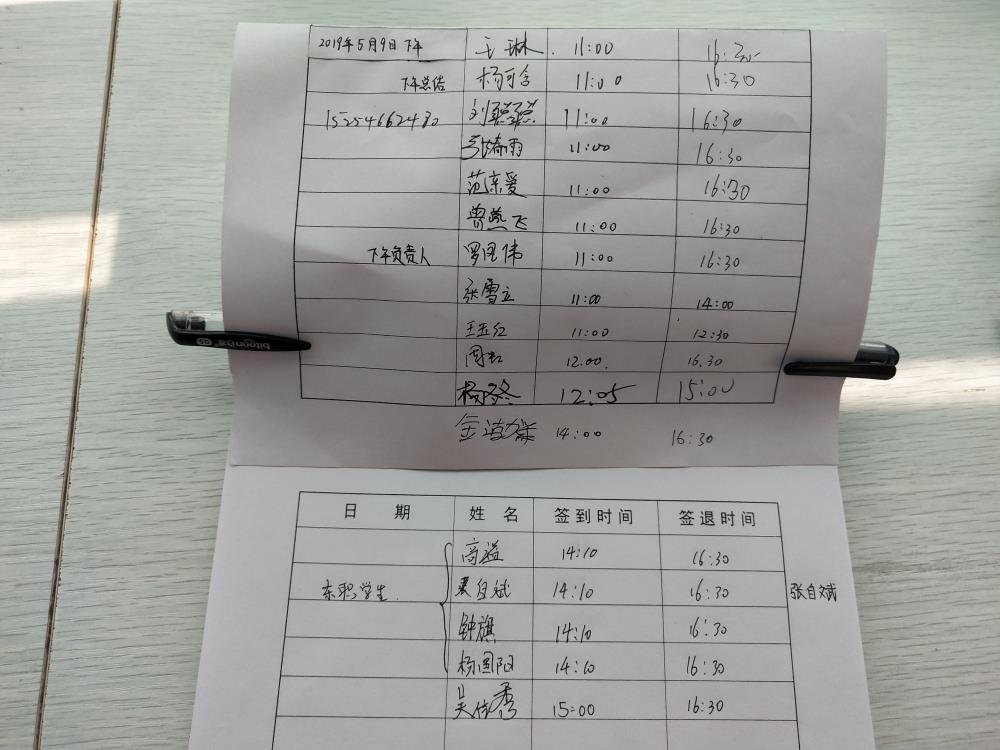 2019年5月9日 下午 王琳 11:00 16:30
下午总结 杨可含 11:00 16:30
15254662480 刘聪聪 11:00 16:30
张琦雨 11:00 16:30
范东爱 11:00 16:30
曾燕飞 11:00 16:30
下午负责人 罗国伟 11:00 16:30
张雪立 11:00 14:00
王玉红 11:00 12:30
周虹 12.00. 16.30
杨 12:05 15:00
金 14:00 16:30
日 期 姓 名 签到时间 签退时间
高溢 14:10 16:30
东职学生. 自斌 14:10 16:30 张自斌
钟旗 14:10 16:30
杨国阳 14:10 16:30
吴传秀 15:00 16:30
bitoon